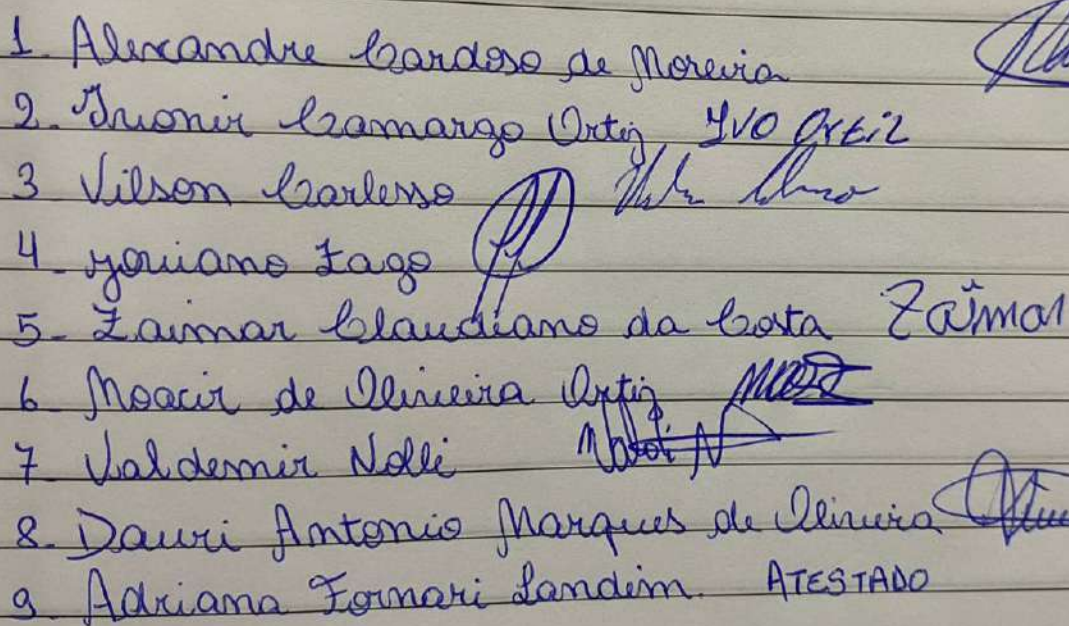 1. Alexandre Cardoso de Moreira
2. Ivonir Camargo Ortiz IVO Ortiz
3 Vilson Carlesso
4 - Zago
5- Zaimar Claudiano da Costa Zaimar
6- Moacir de Oliveira Ortiz
7 Valdemir Nolli
8. Dauri Antonio Marques de Oliveira
9 Adriana Fornari Landim. ATESTADO